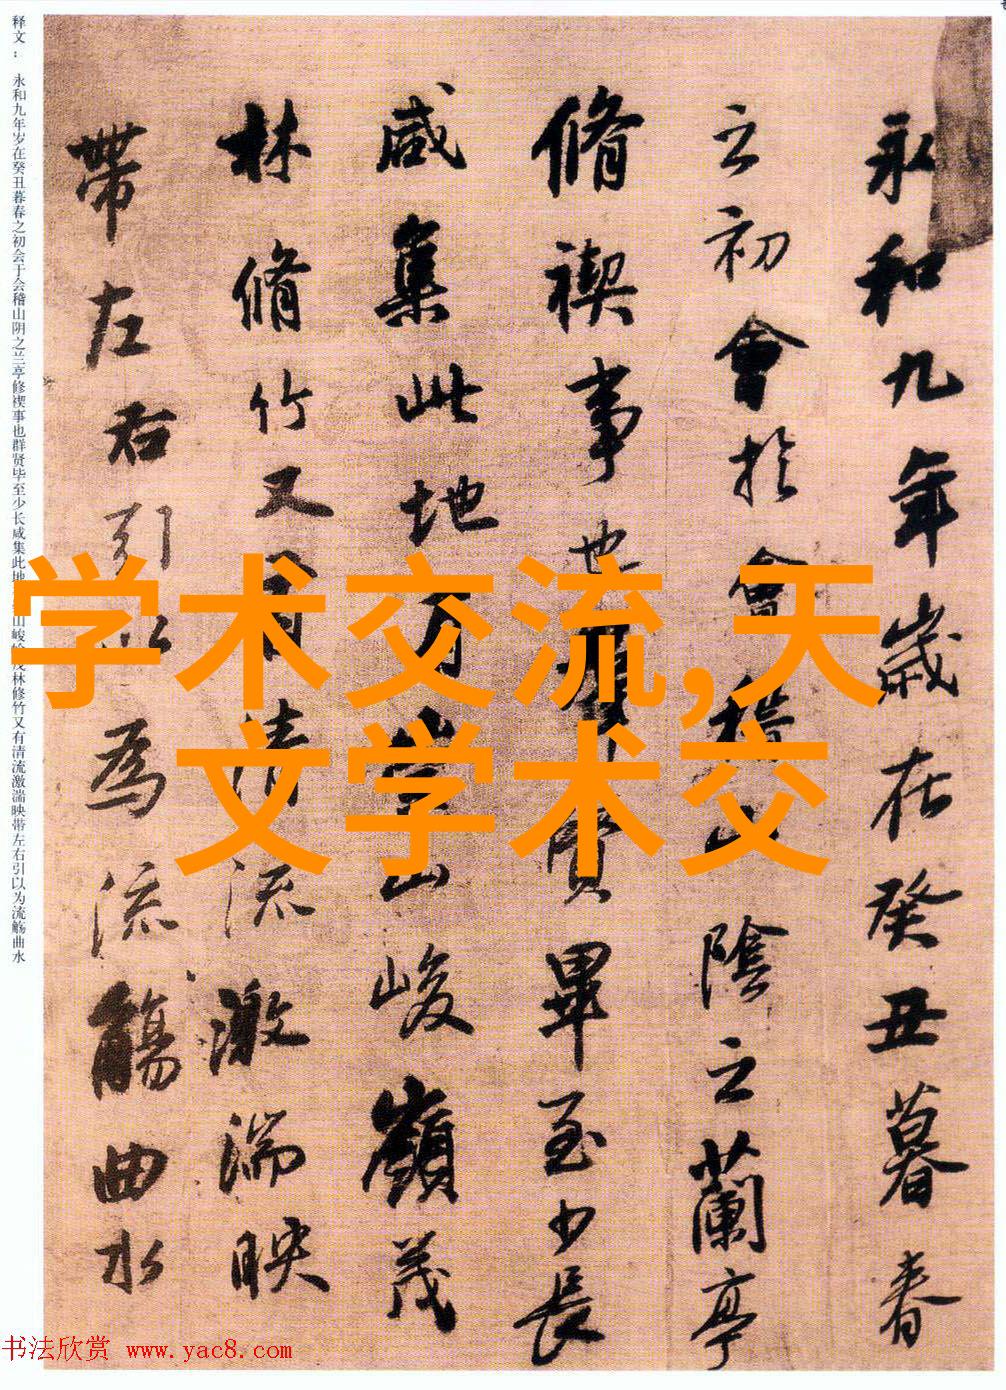 永和九年歲在癸丑暮春
之初會於會稽山陰之蘭亭
脩禊事也群賢畢至少長
咸集此地有崇山峻嶺茂
林脩竹又有清流激湍映
帶左右引以為流觴曲水
释文：永和九年岁在癸丑暮春之初会于会稽山阴之兰亭修禊事也群贤毕至少长咸集此地山峻岭茂林修竹又有清流激湍映带左右引以为流觞曲水
学术交流,天
文学术交
书法欣赏 www.yac8.com